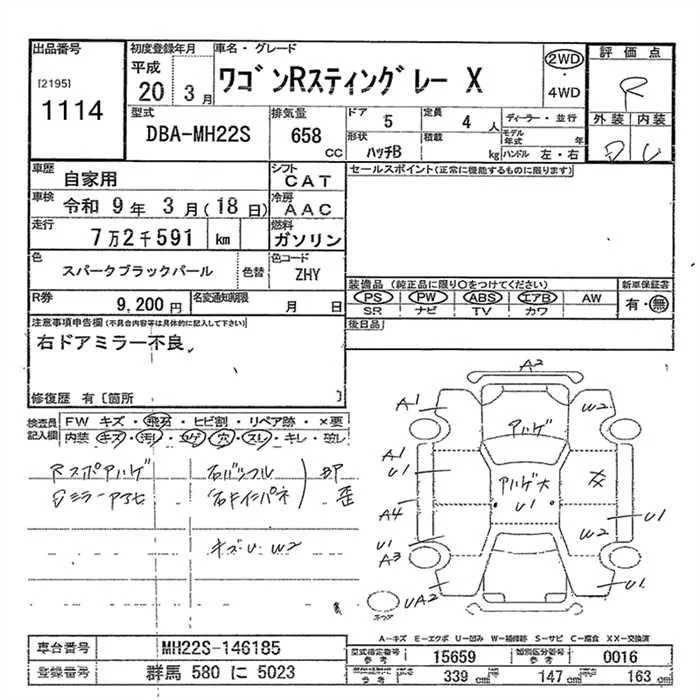 出品番号
[2195]
1114
初度登録年月
平成
20 3月
車名・グレード
ワゴンRスティングレー X
2WD
・
4WD
評価点
R
外装 内装
D U
型式
DBA-MH22S
排気量
658 CC
ドア 5
定員 4 人
ディーラー・並行
形状 ハッチB
積載 kg
モデル年式 年
ハンドル 左・右
車歴 自家用
シフト CAT
車検 令和 9年 3月(18日)
冷房 AAC
走行 7万2千591 km
燃料 ガソリン
色 スパークブラックパール
色替
色コード ZHY
R券 9,200円
名変通知期限 月 日
セールスポイント(正常に機能するものに限ります)
装備品 (純正品に限り○をつけてください)
新車保証書
PS PW ABS エアB AW
SR ナビ TV カワ
有・無
後日品
注意事項申告欄(不具合内容等は具体的に記入して下さい)
右ドアミラー不良
修復歴 有〔箇所 〕
検査員記入欄
FW キズ・飛石・ヒビ割・リペア跡・×要
内装 キズ・汚レ・コゲ・穴・スレ・キレ・破レ
Rスポアハゲ
右バックフル
部
歪
キズU W2
A2
A1
W2
アハゲ
A1
U1
アハゲ大
U1
A4
W2
U1
U1
A3
UA2
U1
スペア
A-キズ E-エクボ U-凹み W-補修跡 S-サビ C-腐食 XX-交換済
車台番号 MH22S-146185
登録番号 群馬 580 に 5023
型式指定番号 参考 15659
類別区分番号 参考 0016
参考 339cm 147cm 163cm